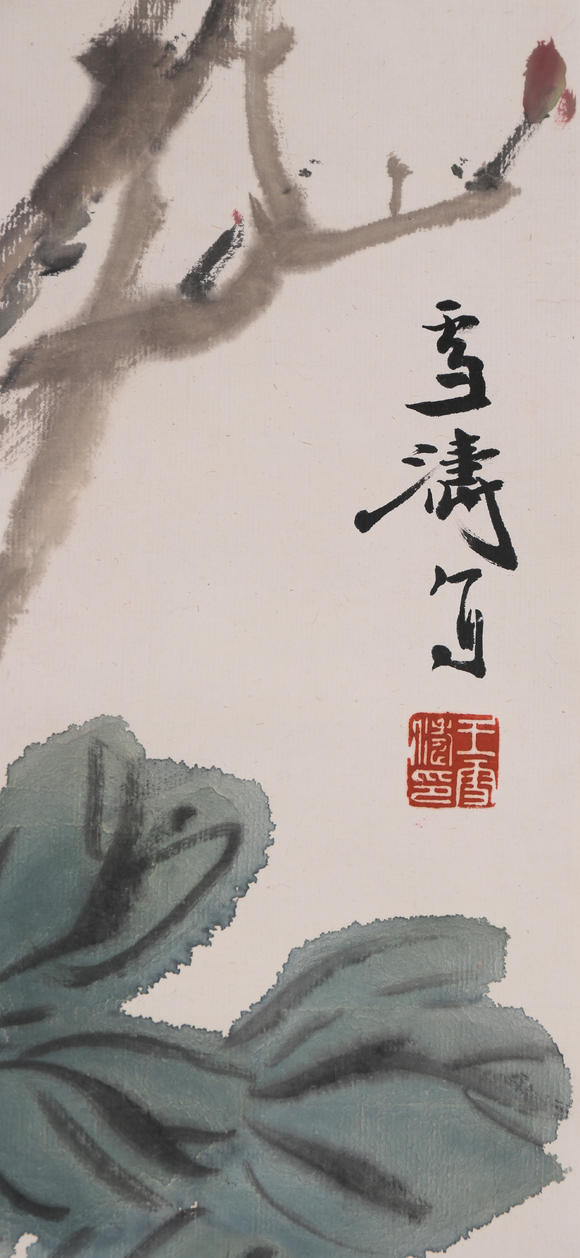 雪濤写
王雪濤印